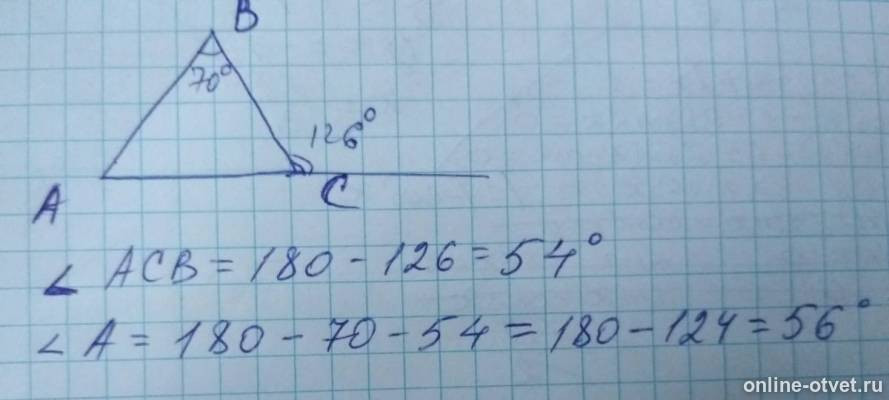 B
70°
126°
A
C
∠ ACB = 180 - 126 = 54°
∠ A = 180 - 70 - 54 = 180 - 124 = 56°
online-otvet.ru